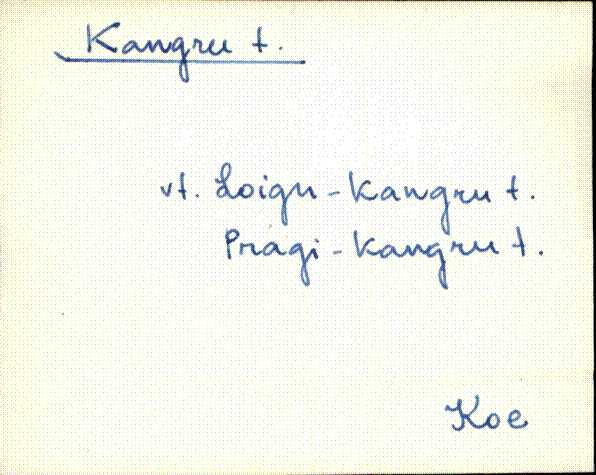 Kangru t.
vt. Loigu-Kangru t.
Pragi-Kangru t.
Koe